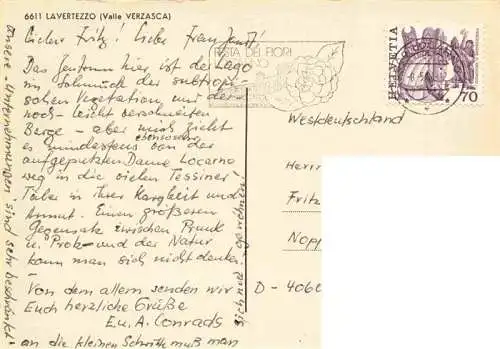 6611 LAVERTEZZO (Valle VERZASCA)
Lieber Fritz! Liebe Frau
Das Zentrum hier ist der Lago
im Schmuck der subtropi-
schen Vegetation und der
noch leicht verschneiten
Berge - aber mich zieht
es mindestens ebensosehr von der
aufgeputzten Dame Locarno
weg in die vielen Tessiner
Täler in ihrer Kargheit und
Anmut. Einen größeren
Gegensatz zwischen Prunk
u. Protz und der Natur
kann man sich nicht denken.
Von dem allem senden wir
Euch herzliche Grüße
E. u. A. Conrads
an die kleinen Schritte muß man
sich nur gewöhnen!
Unsere Unternehmungen sind sehr beschränkt
FESTA DEI FIORI
LOCARNO
HELVETIA
70
Westdeutschland
Herrn
Fritz
Nopp
D - 4060